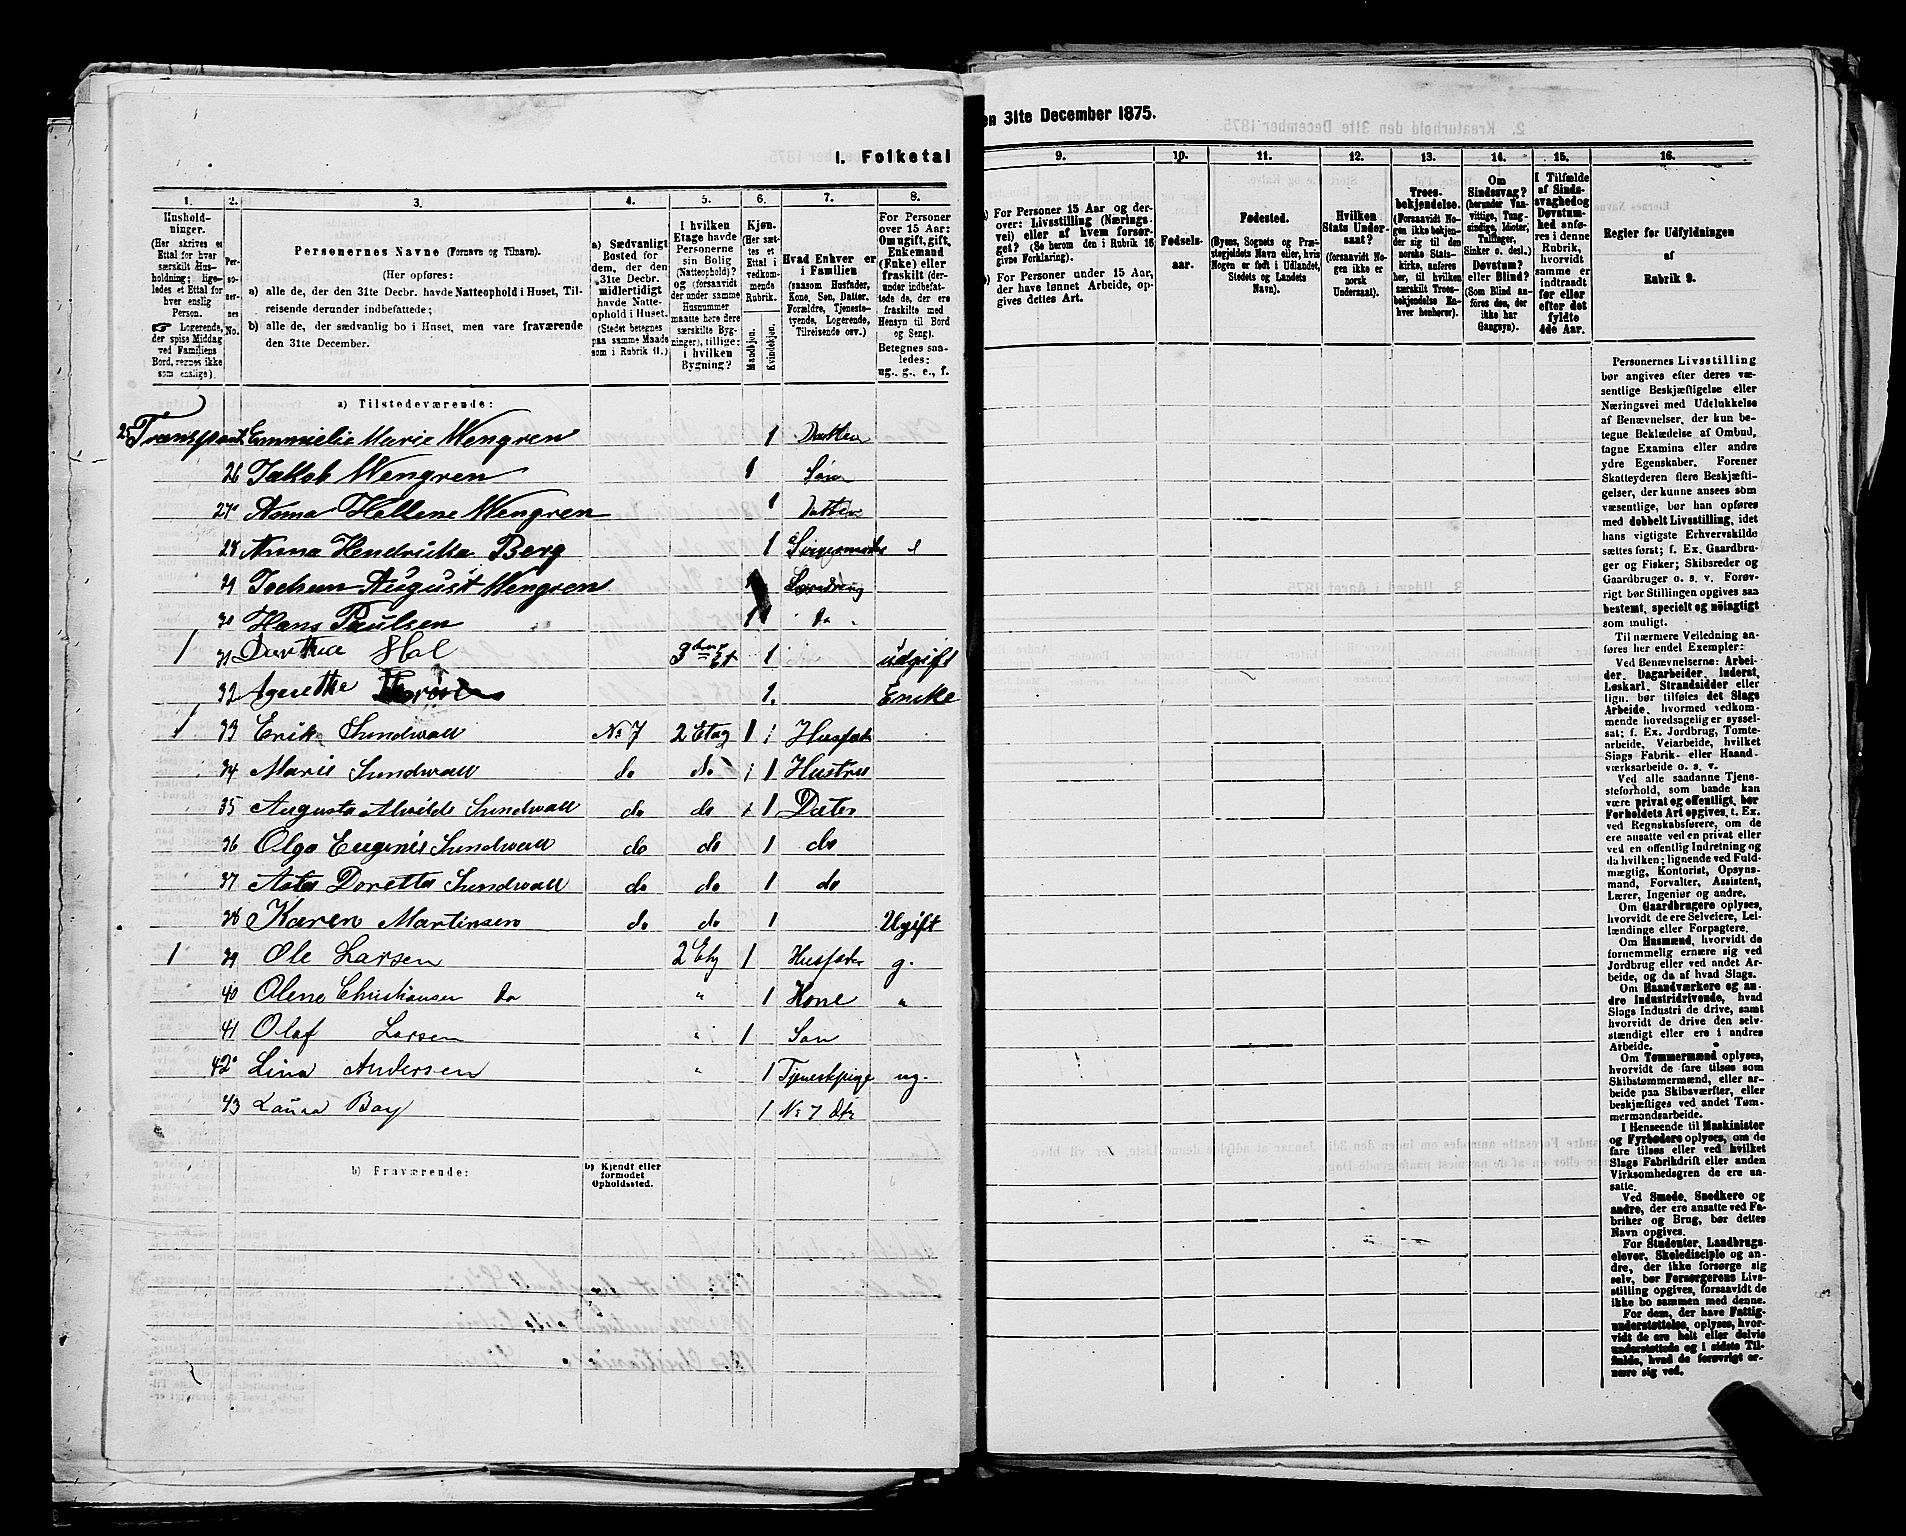 I. Folketal
en 31te December 1875.
1. 2. 3. 4. 5. 6. 7. 8.
Hushold-
ninger.
(Her skrives et
Ettal for hver
særskilt Hus-
holdning; lige-
ledes et Ettal for
hver enslig
Person.
☞ Logerende,
der spise Middag
ved Familiens
Bord, regnes ikke
som enslige).
Per-
so-
ner-
nes
No.
Personernes Navne (Fornavn og Tilnavn).
(Her opføres:
a) alle de, der den 31te Decbr. havde Natteophold i Huset, Til-
reisende derunder indbefattede;
b) alle de, der sædvanlig bo i Huset, men vare fraværende
den 31te December.
a) Sædvanligt
Bosted for
dem, der den
31te Decbr.
midlertidigt
havde Natte-
ophold i Huset.
(Stedet betegnes
paa samme Maade
som i Rubrik 11.)
I hvilken
Etage havde
Personerne
sin Bolig
(Natteophold)?
og (forsaavidt
der under samme
Husnummer
maatte høre flere
særskilte Byg-
ninger), tillige:
i hvilken
Bygning?
Kjøn.
(Her sæt-
tes et
Ettal i
vedkom-
mende
Rubrik.
Mandkjøn.
Kvindekjøn.
Hvad Enhver er
i Familien
(saasom Husfader,
Kone, Søn, Datter,
Forældre, Tjeneste-
tyende, Logerende,
Tilreisende osv.)
For Personer
over 15 Aar:
Om ugift, gift,
Enkemand
(Enke) eller
fraskilt (der-
under indbefat-
tede de, der ere
fraskilte med
Hensyn til Bord
og Seng)
Betegnes saa-
ledes:
ug., g., e., f.
a) Tilstedeværende:
25 Transport Emmielie Marie Wengren 1 Datter
26 Jakob Wengren 1 Søn
27 Anna Hellene Wengren 1 Datter
28 Anna Hendrikka Berg 1 e
29 Jochum August Wengren 1
30 Hans Paulsen 1 do
1 31 Dorthea Hol 3die Et 1 udgift
32 Agnethe 1. Encke
1 33 Erik Sundwall No 7 2 Etag 1 Husfad
34 Marie Sundwall do do 1 Hustru
35 Augusta Alvilde Sundwall do do 1 Dater
36 Olga Eugenie Sundwall do do 1 do
37 Asta Doretta Sundwall do do 1 do
38 Karen Martinsen do do 1 Ugift
1 39 Ole Larsen 2 Etg 1 Husfader g.
40 Olene Christiansen do " 1 Kone "
41 Olaf Larsen " 1 Søn
42 Lina Andersen " 1 Tjenestpige ug.
43 Laura Bay 1 No 7 Dtr
b) Fraværende:
b) Kjendt eller
formodet
Opholdssted.
9. 10. 11. 12. 13. 14. 15. 16.
a) For Personer 15 Aar og der-
over: Livsstilling (Nærings-
vei) eller af hvem forsør-
get? (Se herom den i Rubrik 16
givne Forklaring).
b) For Personer under 15 Aar,
der have lønnet Arbeide, op-
gives dettes Art.
Fødsels-
aar.
Fødested.
(Byens, Sognets og Præ-
stegjeldets Navn eller, hvis
Nogen er født i Udlandet,
Stedets og Landets
Navn).
Hvilken
Stats Under-
saat?
(forsaavidt No-
gen ikke er
norsk
Undersaat).
Troes-
bekjendelse.
(Forsaavidt No-
gen ikke bekjen-
der sig til den
norske Stats-
kirke, anføres
her, til hvilken
særskilt Troes-
bekjendelse En-
hver henhører).
Om
Sindssvag?
(herunder Van-
vittige, Tung-
sindige, Idioter,
Tullinger,
Sinker o. desl.)
Døvstum?
eller Blind?
(Som Blind an-
føres den, der
ikke har
Gangsyn).
I Tilfælde
af Sinds-
svaghed og
Døvstum-
hed anfø-
res i denne
Rubrik,
hvorvidt
samme er
indtraadt
før eller
efter det
fyldte
4de Aar.
Regler for Udfyldningen
af
Rubrik 9.
Personernes Livsstilling
bør angives efter deres væ-
sentlige Beskjæftigelse eller
Næringsvei med Udelukkelse
af Benævnelser, der kun be-
tegne Beklædelse af Ombud,
tagne Examina eller andre
ydre Egenskaber. Forener
Skatteyderen flere Beskjæfti-
gelser, der kunne ansees som
væsentlige, bør han opføres
med dobbelt Livsstilling, idet
hans vigtigste Erhvervskilde
sættes først; f. Ex. Gaardbru-
ger og Fisker; Skibsreder og
Gaardbruger o. s. v. Forøv-
rigt bør Stillingen opgives saa
bestemt, specielt og nøiagtigt
som muligt.
Til nærmere Veiledning an-
føres her endel Exempler:
Ved Benævnelserne: Arbei-
der, Dagarbeider, Inderst,
Løskarl, Strandsidder eller
lign. bør tilføies det Slags
Arbeide, hvormed vedkom-
mende hovedsagelig er syssel-
sat; f. Ex. Jordbrug, Tomte-
arbeide, Veiarbeide, hvilket
Slags Fabrik- eller Haand-
værksarbeide o. s. v.
Ved alle saadanne Tjene-
steforhold, som baade kan
være privat og offentligt, bør
Forholdets Art opgives, t. Ex.
ved Regnskabsførere, om de
ere ansatte ved en privat eller
ved en offentlig Indretning og
da hvilken; lignende ved Fuld-
mægtig, Kontorist, Opsyns-
mand, Forvalter, Assistent,
Lærer, Ingeniør og andre.
Om Gaardbrugere oplyses,
hvorvidt de ere Selveiere, Lei-
lændinge eller Forpagtere.
Om Husmænd, hvorvidt de
fornemmelig ernære sig ved
Jordbrug eller ved andet Ar-
beide, og da af hvad Slags.
Om Haandværkere og an-
dre Industridrivende, hvad
Slags Industri de drive, samt
hvorvidt de drive den selv-
stændigt eller ere i andres
Arbeide.
Om Tømmermænd oplyses,
hvorvidt de fare tilsøs som
Skibstømmermænd, eller ar-
beide paa Skibsværfter, eller
beskjæftiges ved andet Tøm-
mermandsarbeide.
I Henseende til Maskinister
og Fyrbødere oplyses, om de
fare tilsøs eller ved hvilket
Slags Fabrikdrift eller anden
Virksomhedsgren de ere an-
satte.
Ved Smede, Snedkere og
andre, der ere ansatte ved Fa-
briker og Brug, bør dettes
Navn opgives.
For Studenter, Landbrugs-
elever, Skoledisciple og an-
dre, der ikke forsørge sig
selv, bør Forsørgerens Livs-
stilling opgives, forsaavidt de
ikke bo sammen med denne.
For dem, der have Fattig-
understøttelse, oplyses, hvor-
vidt de ere helt eller delvis
understøttede og i sidste Til-
fælde, hvad de forøvrigt er-
nære sig ved.